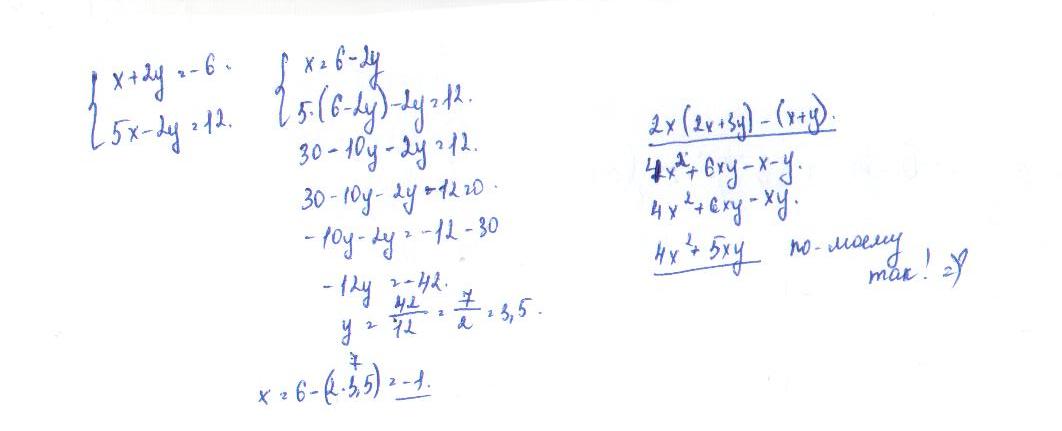 x+2y=-6.
5x-2y=12.
x=6-2y
5·(6-2y)-2y=12.
30-10y-2y=12.
30-10y-2y-12=0.
-10y-2y=-12-30
-12y=-42.
y=42/12=7/2=3,5.
7
x=6-(2·3,5)=-1.
2x(2x+3y)-(x+y).
4x²+6xy-x-y.
4x²+6xy-xy.
4x²+5xy по-моему
так! =)